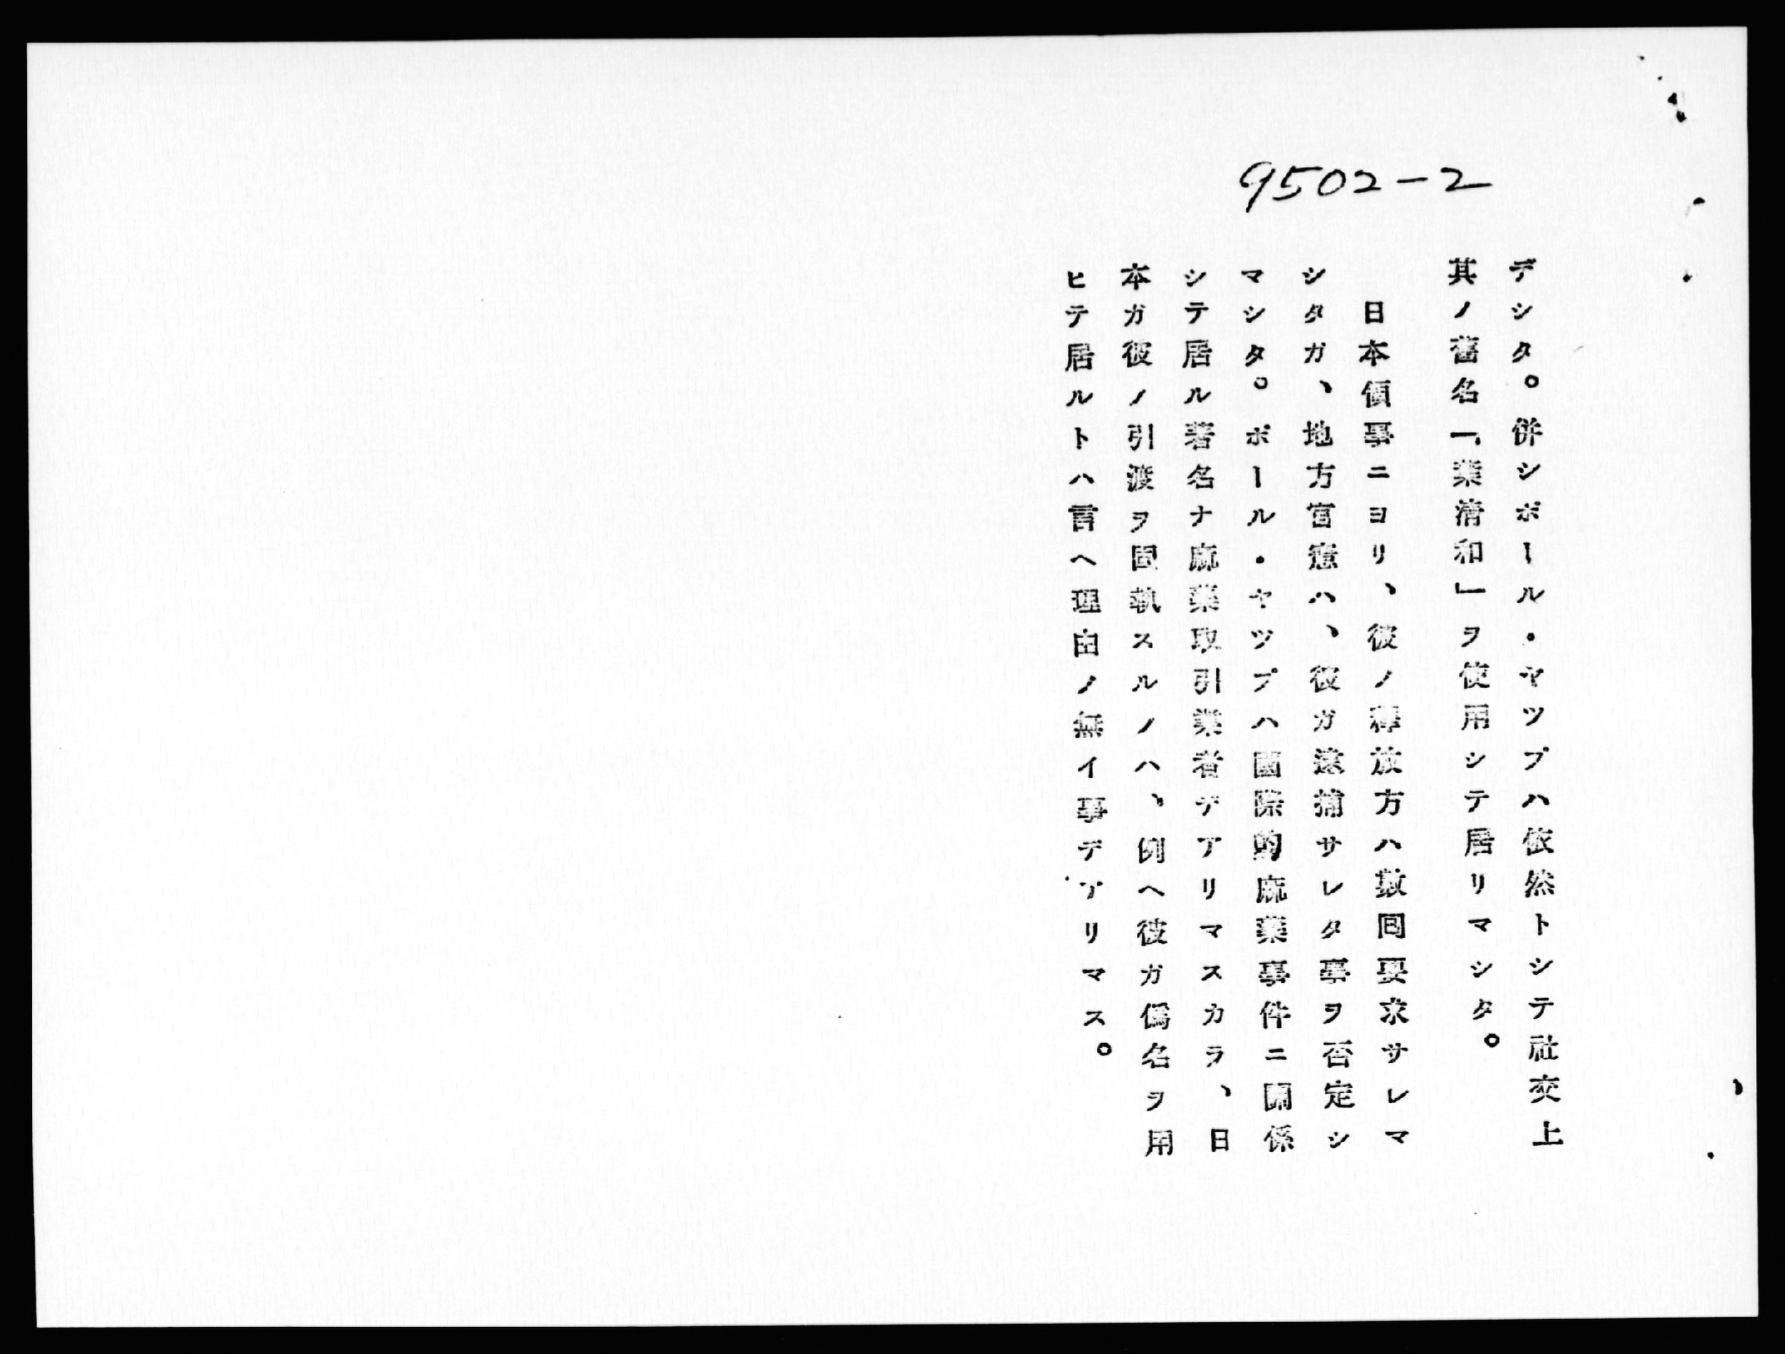 9502-2
デシタ。併シポール・ヤツプハ依然トシテ社交上
其ノ舊名「葉清和」ヲ使用シテ居リマシタ。
日本領事ニヨリ、彼ノ釋放方ハ數囘要求サレマ
シタガ、地方官憲ハ、彼ガ逮捕サレタ事ヲ否定シ
マシタ。ポール・ヤツプハ國際的麻藥事件ニ關係
シテ居ル著名ナ麻藥取引業者デアリマスカラ、日
本ガ彼ノ引渡ヲ固執スルノハ、例ヘ彼ガ僞名ヲ用
ヒテ居ルトハ言ヘ理由ノ無イ事デアリマス。